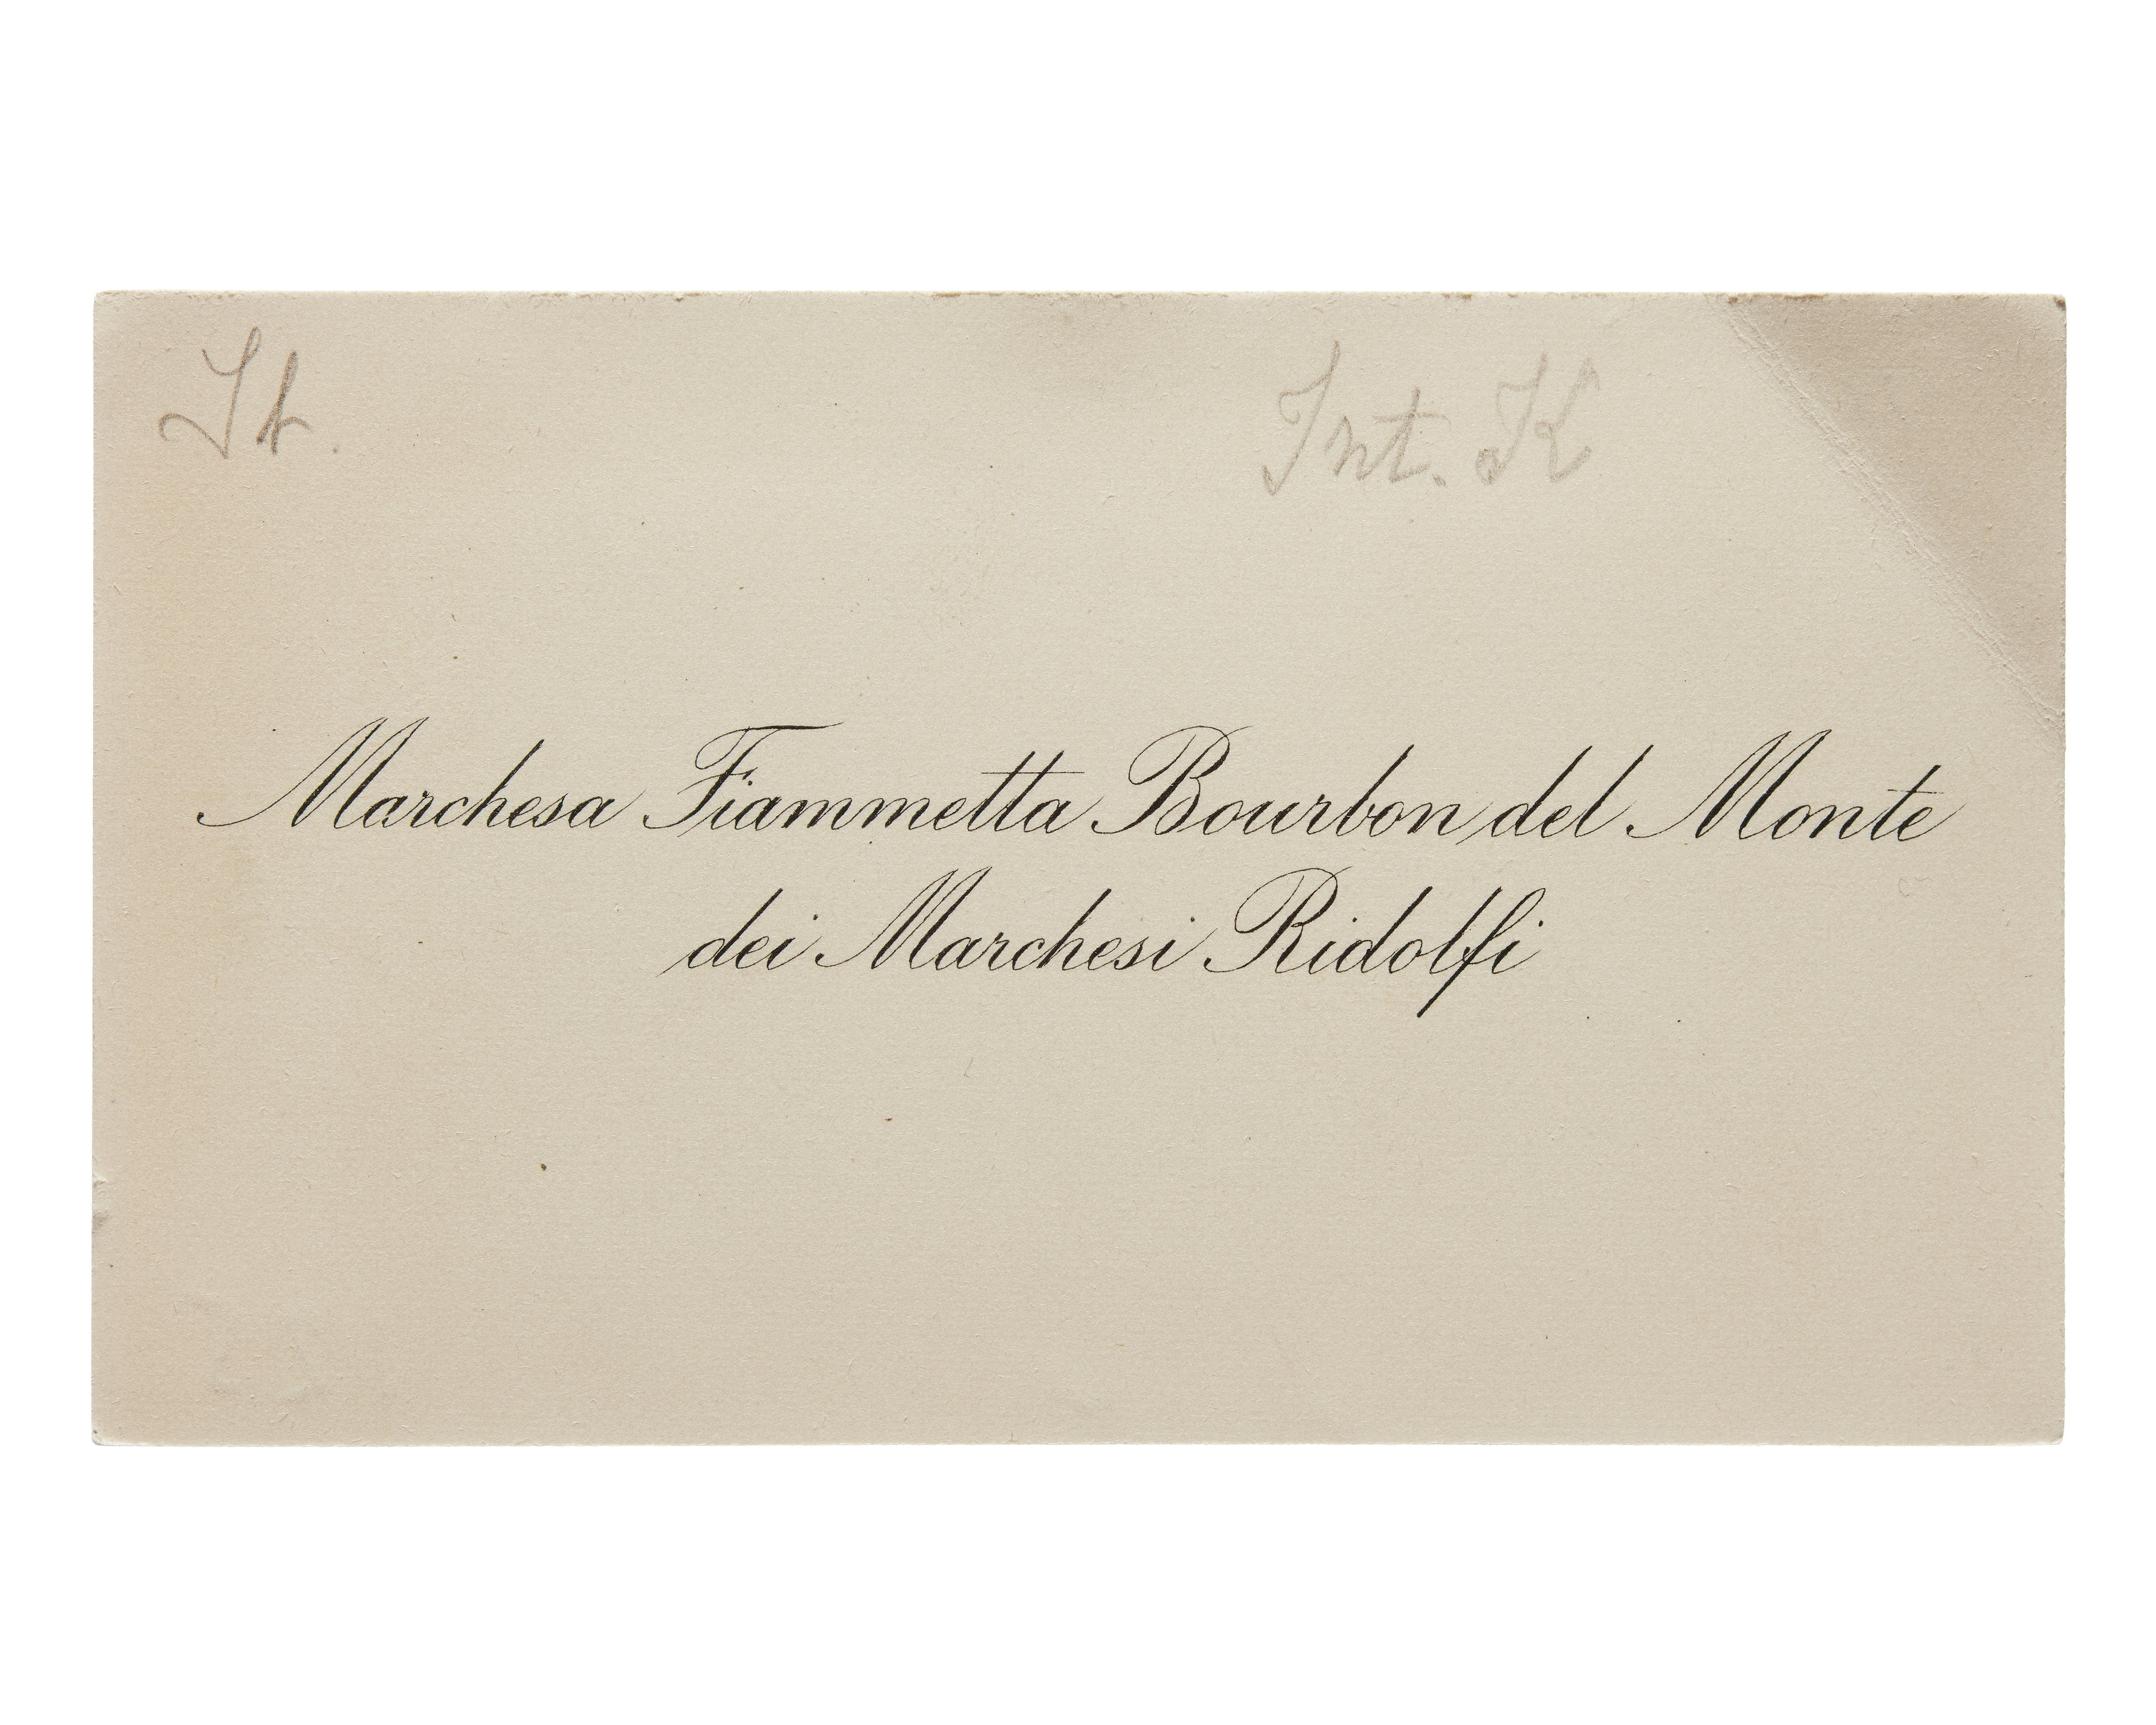 It.
Int. K
Marchesa Fiammetta Bourbon del Monte
dei Marchesi Ridolfi